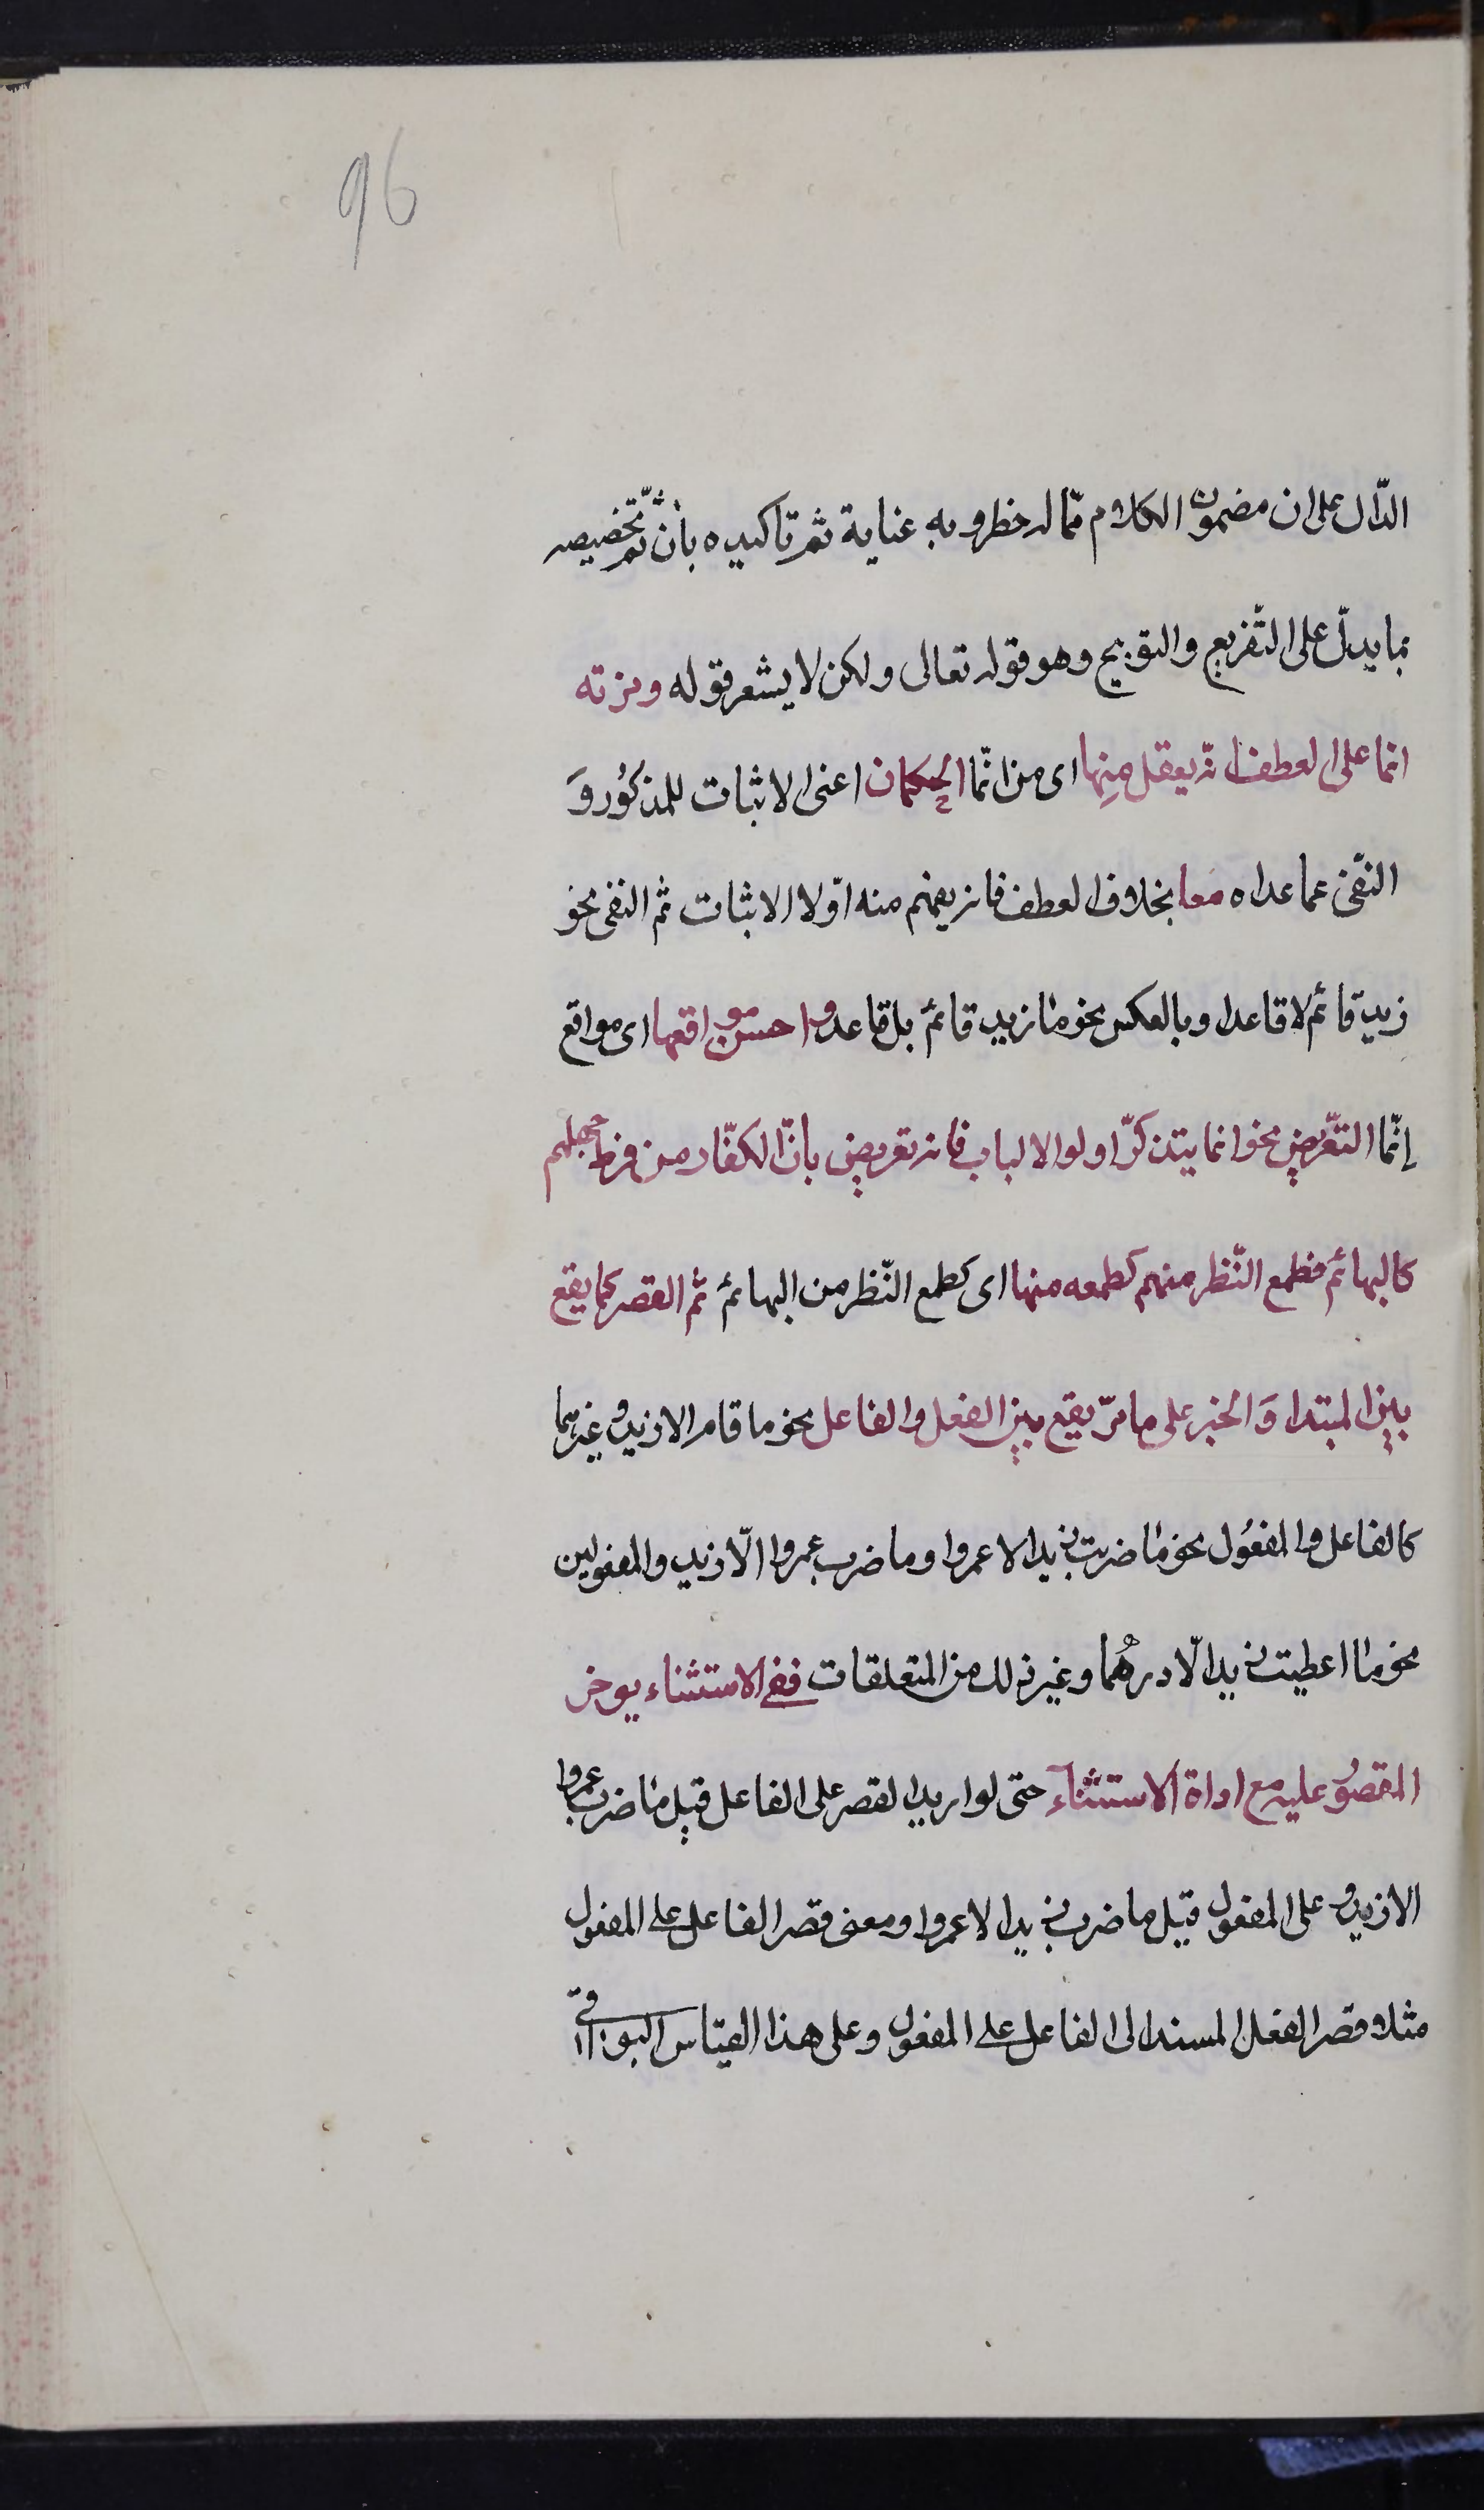 96
الدّال على ان مضمون الكلام ممّا له خطر وبه عناية ثم تاكيده بانّ ثمّ تخصيصه
بما يدلّ على التّفريع والتوبيخ وهو قوله تعالى ولكن لا يشعر قوله ومزته
انما على العطف انه يعقل منِها اى من انّما الحكمان اعنى الاثبات للمذكُور وَ
النّفى عما عداه معا بخلاف العطف فانه يفهم منه اوّلا الاثبات ثم النفى نحو
زيد قائم لا قاعدا وبالعكس نحو ما زيد قائم بل قاعد واحسن مواقعها اى مواقع
إنّما التعّريض نحو انما يتذكرّ اولوا الالباب فانه تعريض بانّ الكفّار من فرط جهلهم
كالبهائم فطمع النّظر منهم كطمعه منها اى كطمع النّظر من البهائم ثم القصر كما يقع
بين المبتدا وَالخبر على ما مرّ يقع بين الفعل والفاعل نحو ما قام الا زيد وغيرهما
كالفاعل والمفعُول نحو ما ضربت زيدا الا عمروا وما ضرب عمروا الّا زيد والمفعولين
نحو ما اعطيت زيدا الّا درهُما وغير ذلك من المتعلقات ففى الاستثناء يوخر
المقصوُر عليه مع اداة الاستثنآء حتى لو اريد القصر على الفاعل قيل ما ضرب عمروا
الا زيد وعلى المفعول قيل ما ضرب زيدا الا عمروا ومعنى قصر الفاعل على المفعول
مثلا قصر الفعل المسند الى الفاعل على المفعول وعلى هذا القياس البواقى